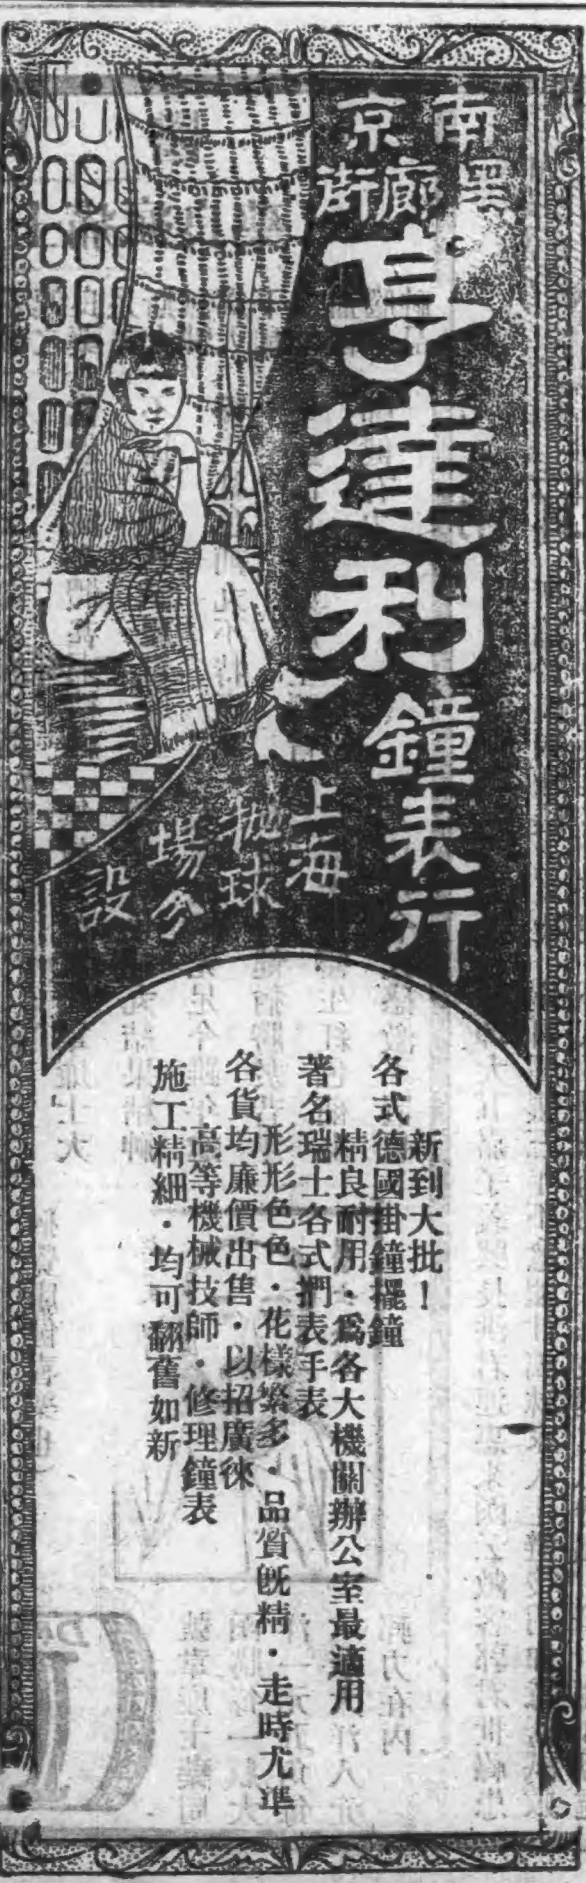 南京
黑廊街
亨達利
鐘表行
上海
拋球
場分
設
新到大批！
各式德國掛鐘擺鐘
精良耐用·爲各大機關辦公室最適用
著名瑞士各式捫表手表
形形色色·花樣繁多·品質旣精·走時尤準
各貨均廉價出售·以招廣徠
高等機械技師·修理鐘表
施工精細·均可翻舊如新